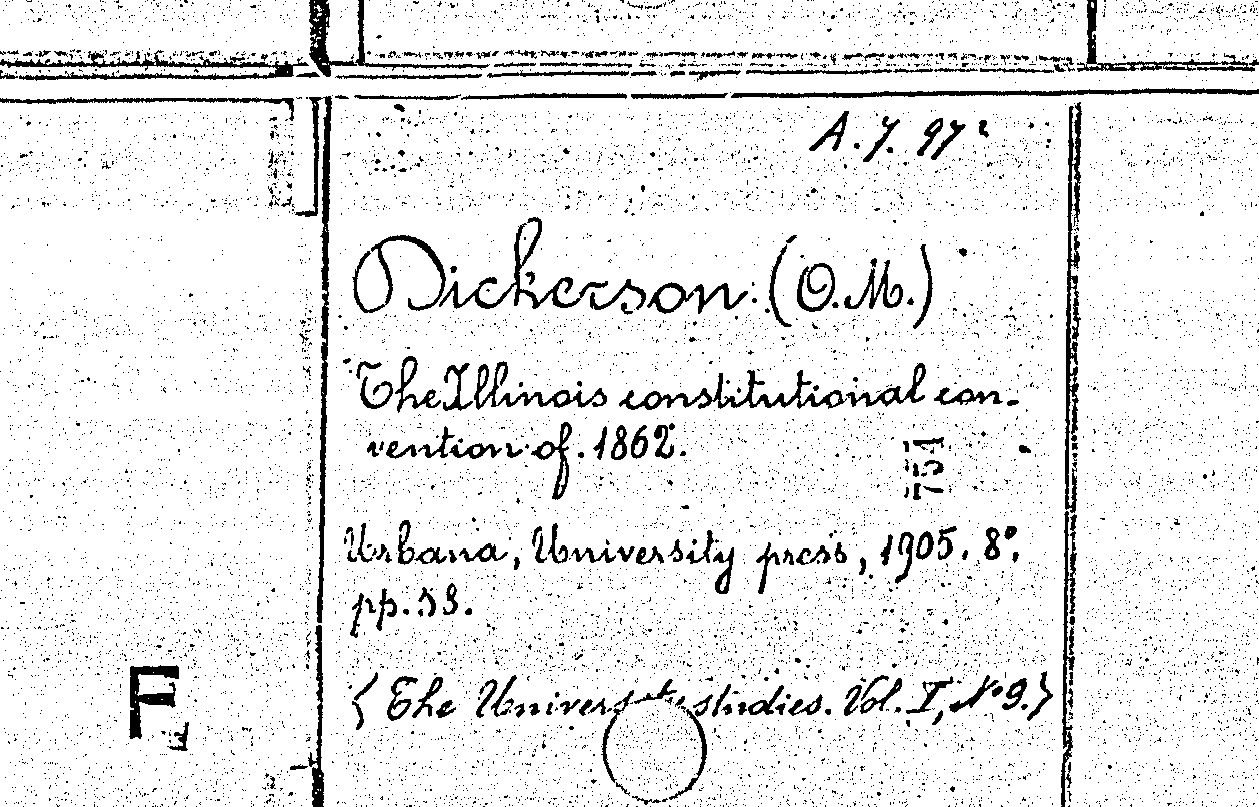 A. 7. 97²
Dickerson. (O.M.)
The Illinois constitutional con-
vention of. 1862.
751
Urbana, University press, 1905. 8°.
pp. 58.
{ The University studies. Vol. I, Nº 9.}
F